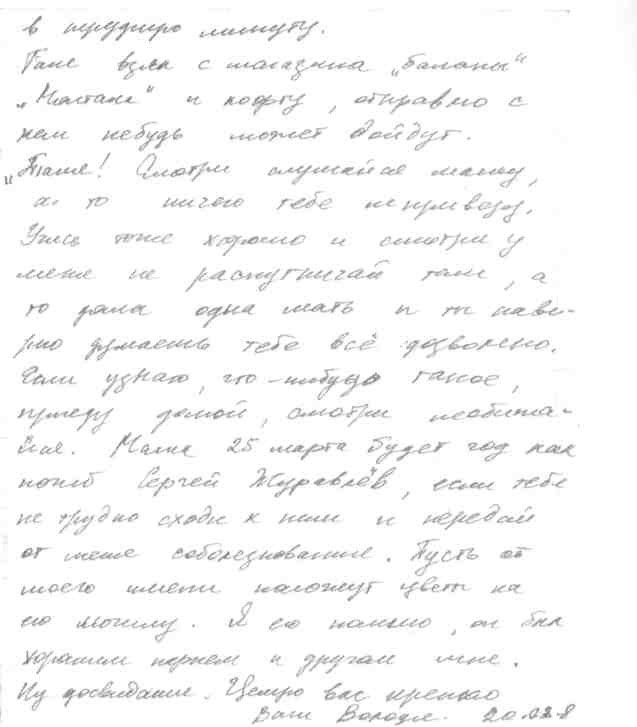 в трудную минуту.
Тане взял с магазина „бананы"
„Монтана" и кофту, отправлю с
кем нибудь может дойдут.
„Таня! Смотри слушайся маму,
а то ничего тебе не привезу.
Учись тоже хорошо и смотри у
меня не распутничай там, а
то дома одна мать и ты наве-
рно думаешь тебе всё дозволено.
Если узнаю, что-нибудь такое,
приеду домой, смотри необижа-
йся. Мама 25 марта будет год как
погиб Сергей Журавлёв, если тебе
не трудно сходи к ним и передай
от меня соболезнование. Пусть от
моего имени положут цветы на
его могилу. Я его помню, он был
хорошим парнем и другом мне.
Ну досвидание. Целую вас крепко
Ваш Володя.